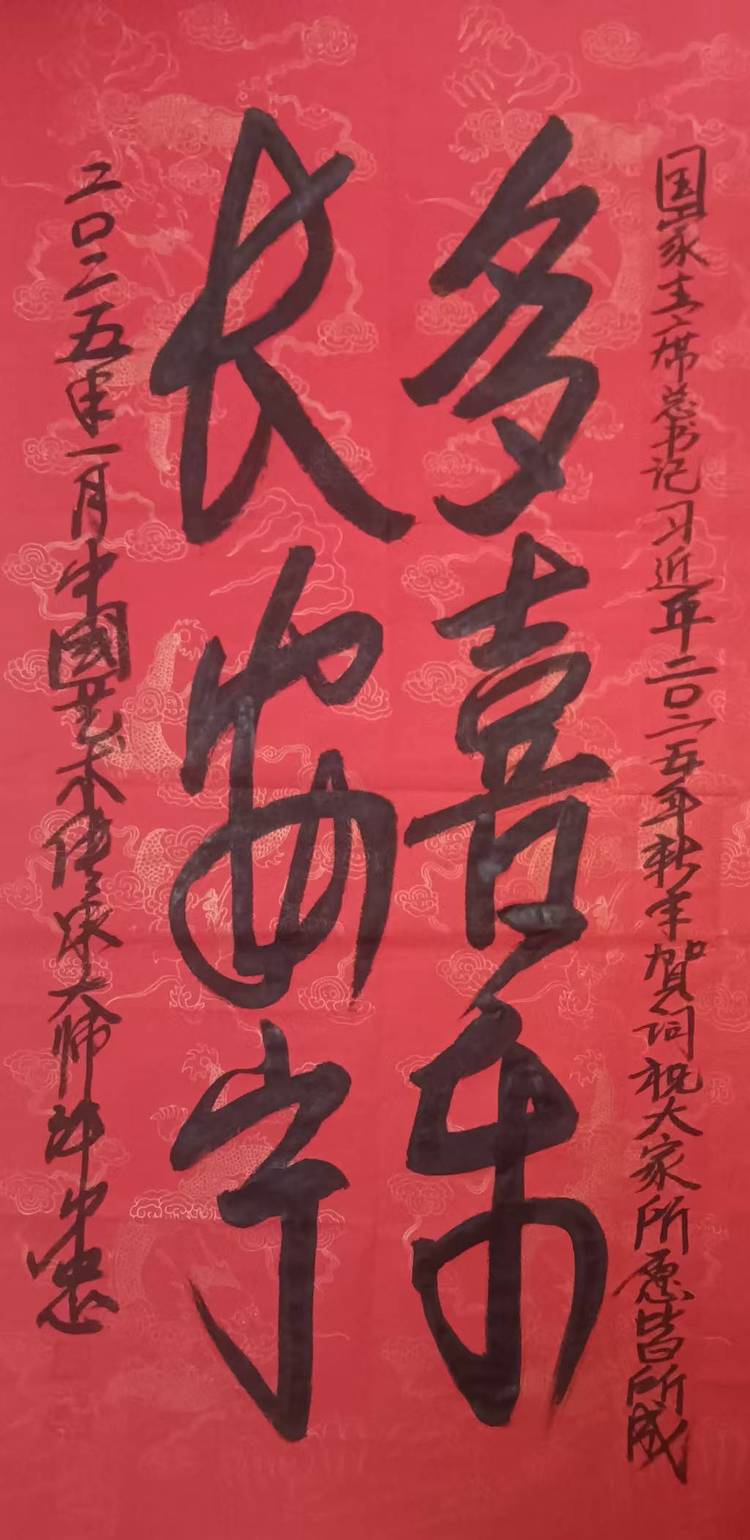 国家主席总书记习近平二〇二五年新年贺词祝大家所愿皆所成
多喜乐
长安宁
二〇二五年一月中國艺术传承大师许中忠